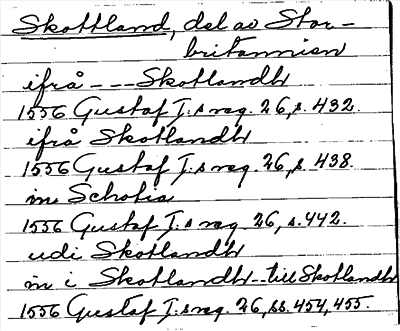 Skottland, del av Stor-
britannien
ifrå --- Skotlandh
1556 Gustaf I:s reg. 26, s. 432.
ifrå Skotlandh
1556 Gustaf I:s reg. 26, s. 438.
in Schotia
1556 Gustaf I:s reg. 26, s. 442.
udi Skotlandh
in i Skotlandh -- till Skotlandh
1556 Gustaf I:s reg. 26, ss. 454, 455.